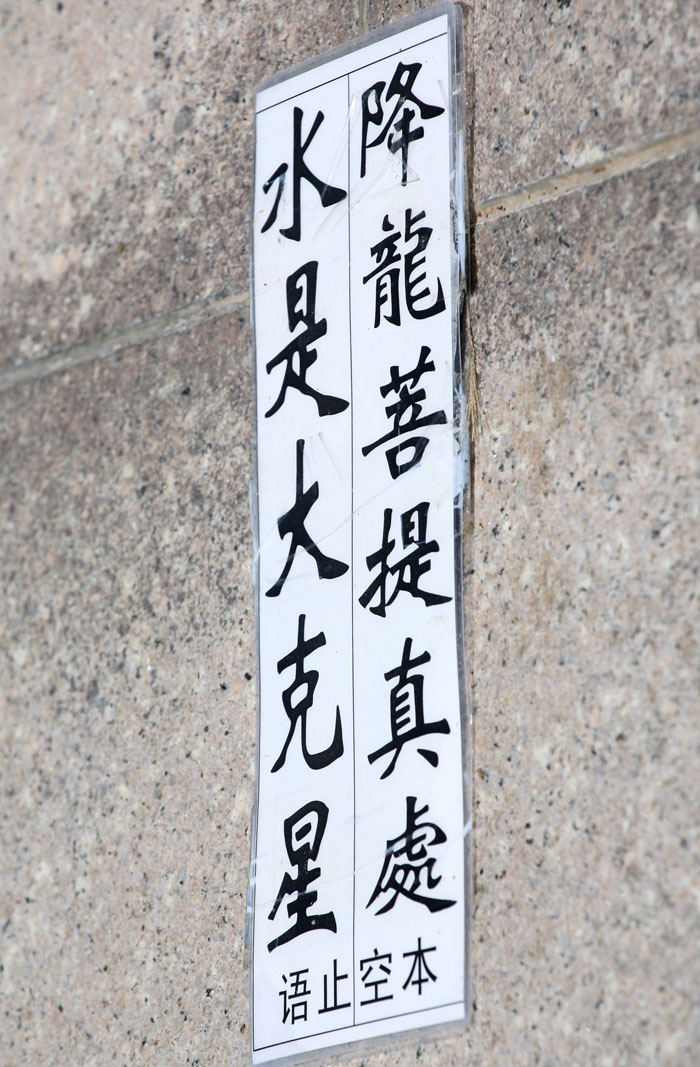 降龍菩提真處
水是大克星
本空止语